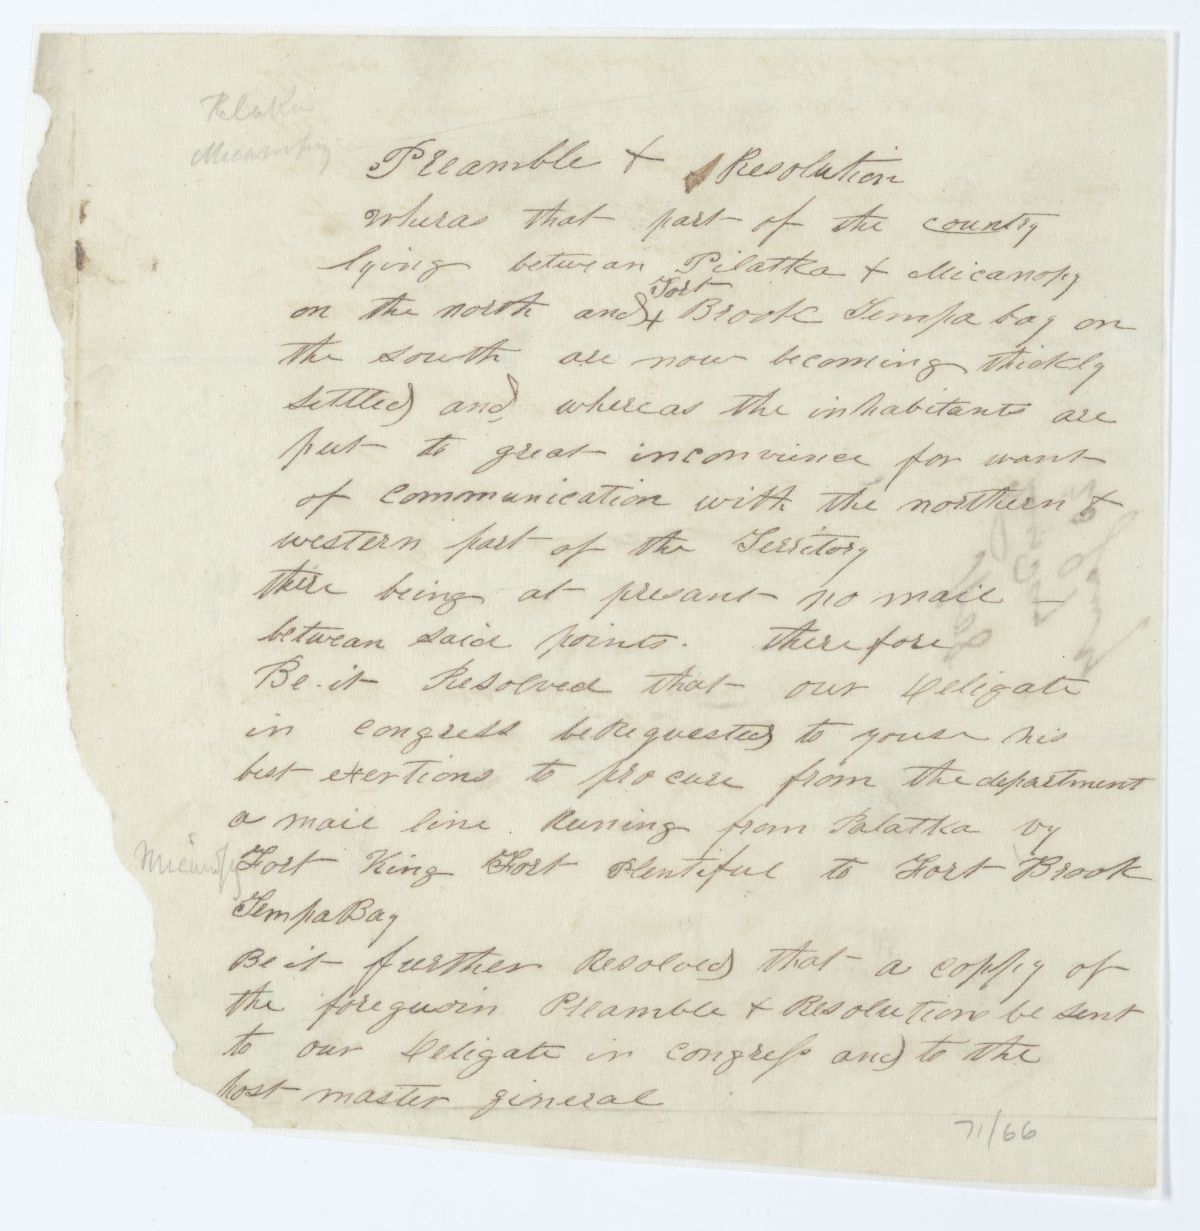 Palatka
Micanopy
Preamble & Resolution
Wheras that part of the country
lying betwean Pilatka & Micanopy
on the north and & Fort Brook Tempa bay on
the south are now becoming thickly
settled and whereas the inhabitants are
put to great inconvience for want
of communication with the northern &
western part of the Territory
there being at presant no mail -
betwean said points. therefore
Be it Resolved that our Deligate
in congress be Requested to youse his
best exertions to procure from the department
a mail line Runing from Palatka by
Micanopy Fort King Fort Plentiful to Fort Brook
Tempa Bay
Be it further Resolved that a coppy of
the foreguoin Preamble & Resolutions be sent
to our Deligate in congress and to the
post master gineral
71/66